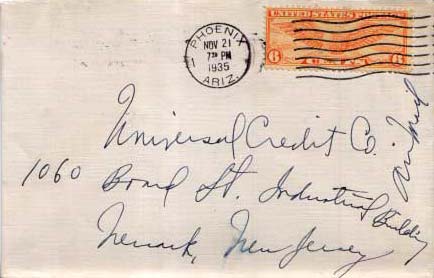 PHOENIX
NOV 21
7 30 PM
1935
ARIZ.
1
UNITED STATES POSTAGE
6 6
Universal Credit Co.
1060 Broad St. Industrial Building
Newark, New Jersey
Air Mail